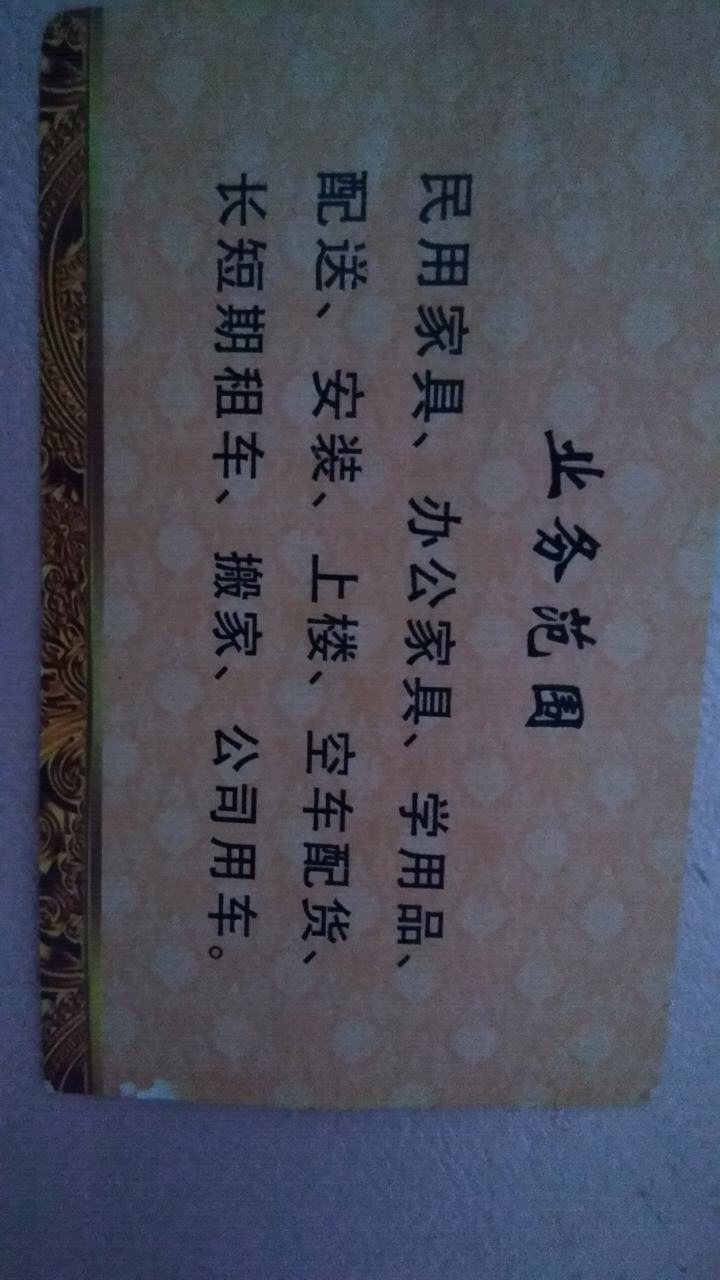 业务范围
民用家具、办公家具、学用品、
配送、安装、上楼、空车配货、
长短期租车、搬家、公司用车。